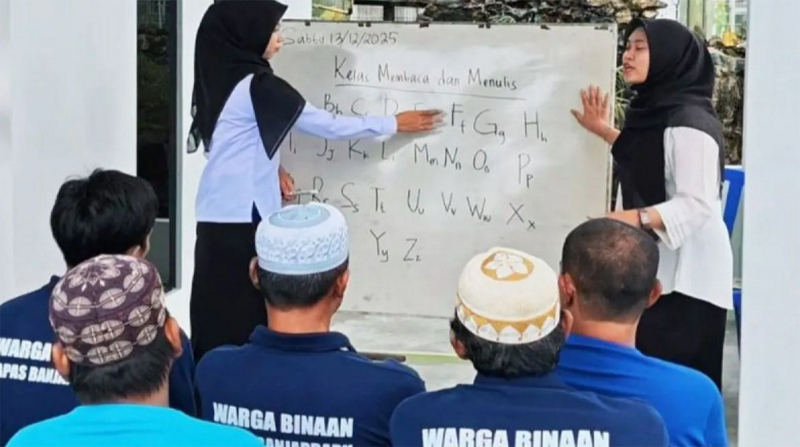 Sabtu 13/12/2025
Kelas Membaca dan Menulis
Bb C D E Ff Gg Hh
Jj Kk L Mm Nn Oo Pp
R Ss Tt Uu Vv Ww Xx
Yy Zz
WARGA
APAS BANJA
WARGA BINAAN
BANJARBARU
WARGA BINAAN